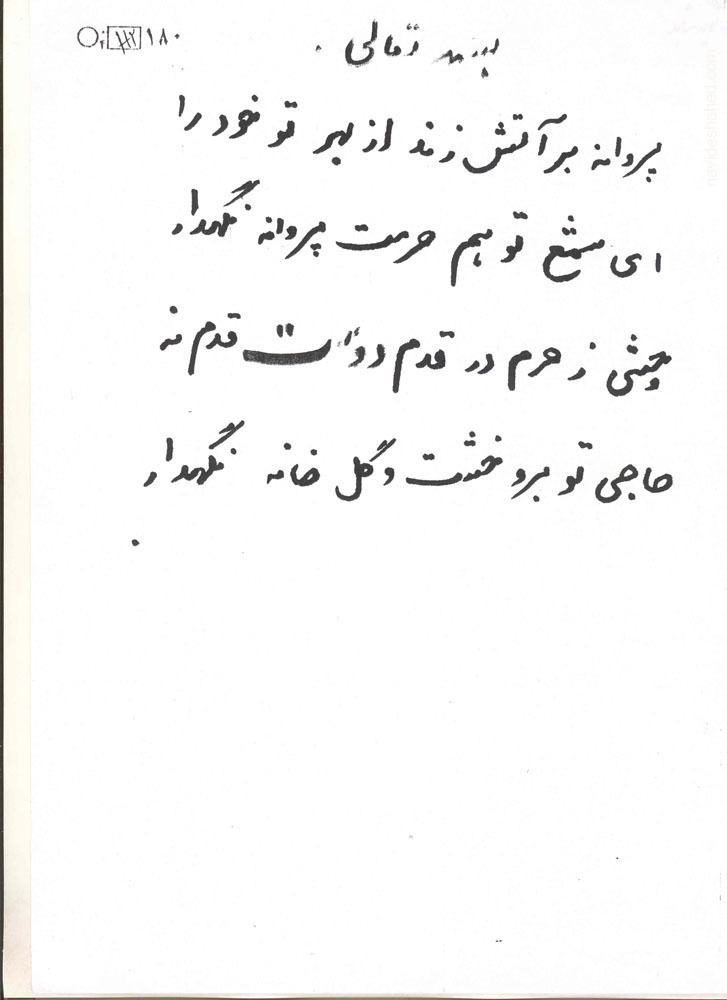 ۱۸۰
بسمه تعالی
پروانه بر آتش زند از بهر تو خود را
ای شمع تو هم حرمت پروانه نگهدار
ز حرم در قدم دوست قدم نه
حاجی تو برو خشت و گل خانه نگهدار
navideshahed.com